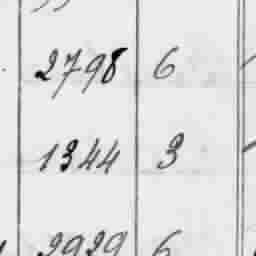 2798 6
1344 3
2929 6